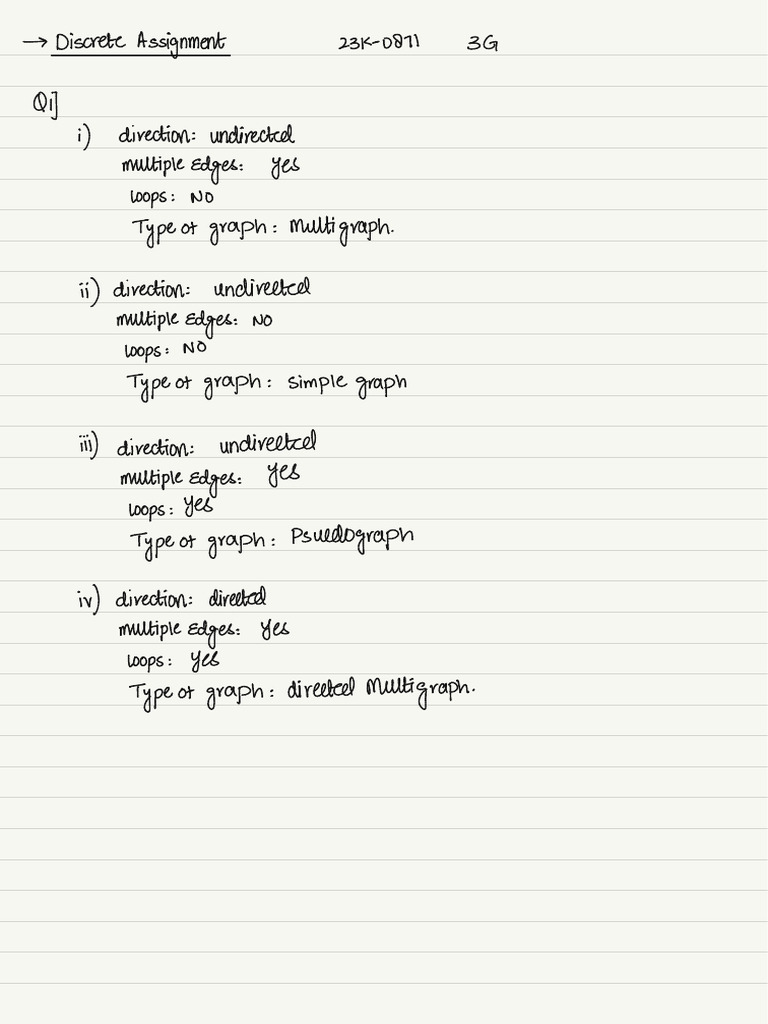 → Discrete Assignment 23K-0871 3G
Q1]
i) direction: undirected
multiple Edges: Yes
loops: NO
Type of graph: Multigraph.
ii) direction: undirected
multiple Edges: NO
loops: NO
Type of graph: simple graph
iii) direction: undirected
multiple Edges: Yes
loops: Yes
Type of graph: Psuedograph
iv) direction: directed
multiple Edges: Yes
loops: Yes
Type of graph: directed Multigraph.